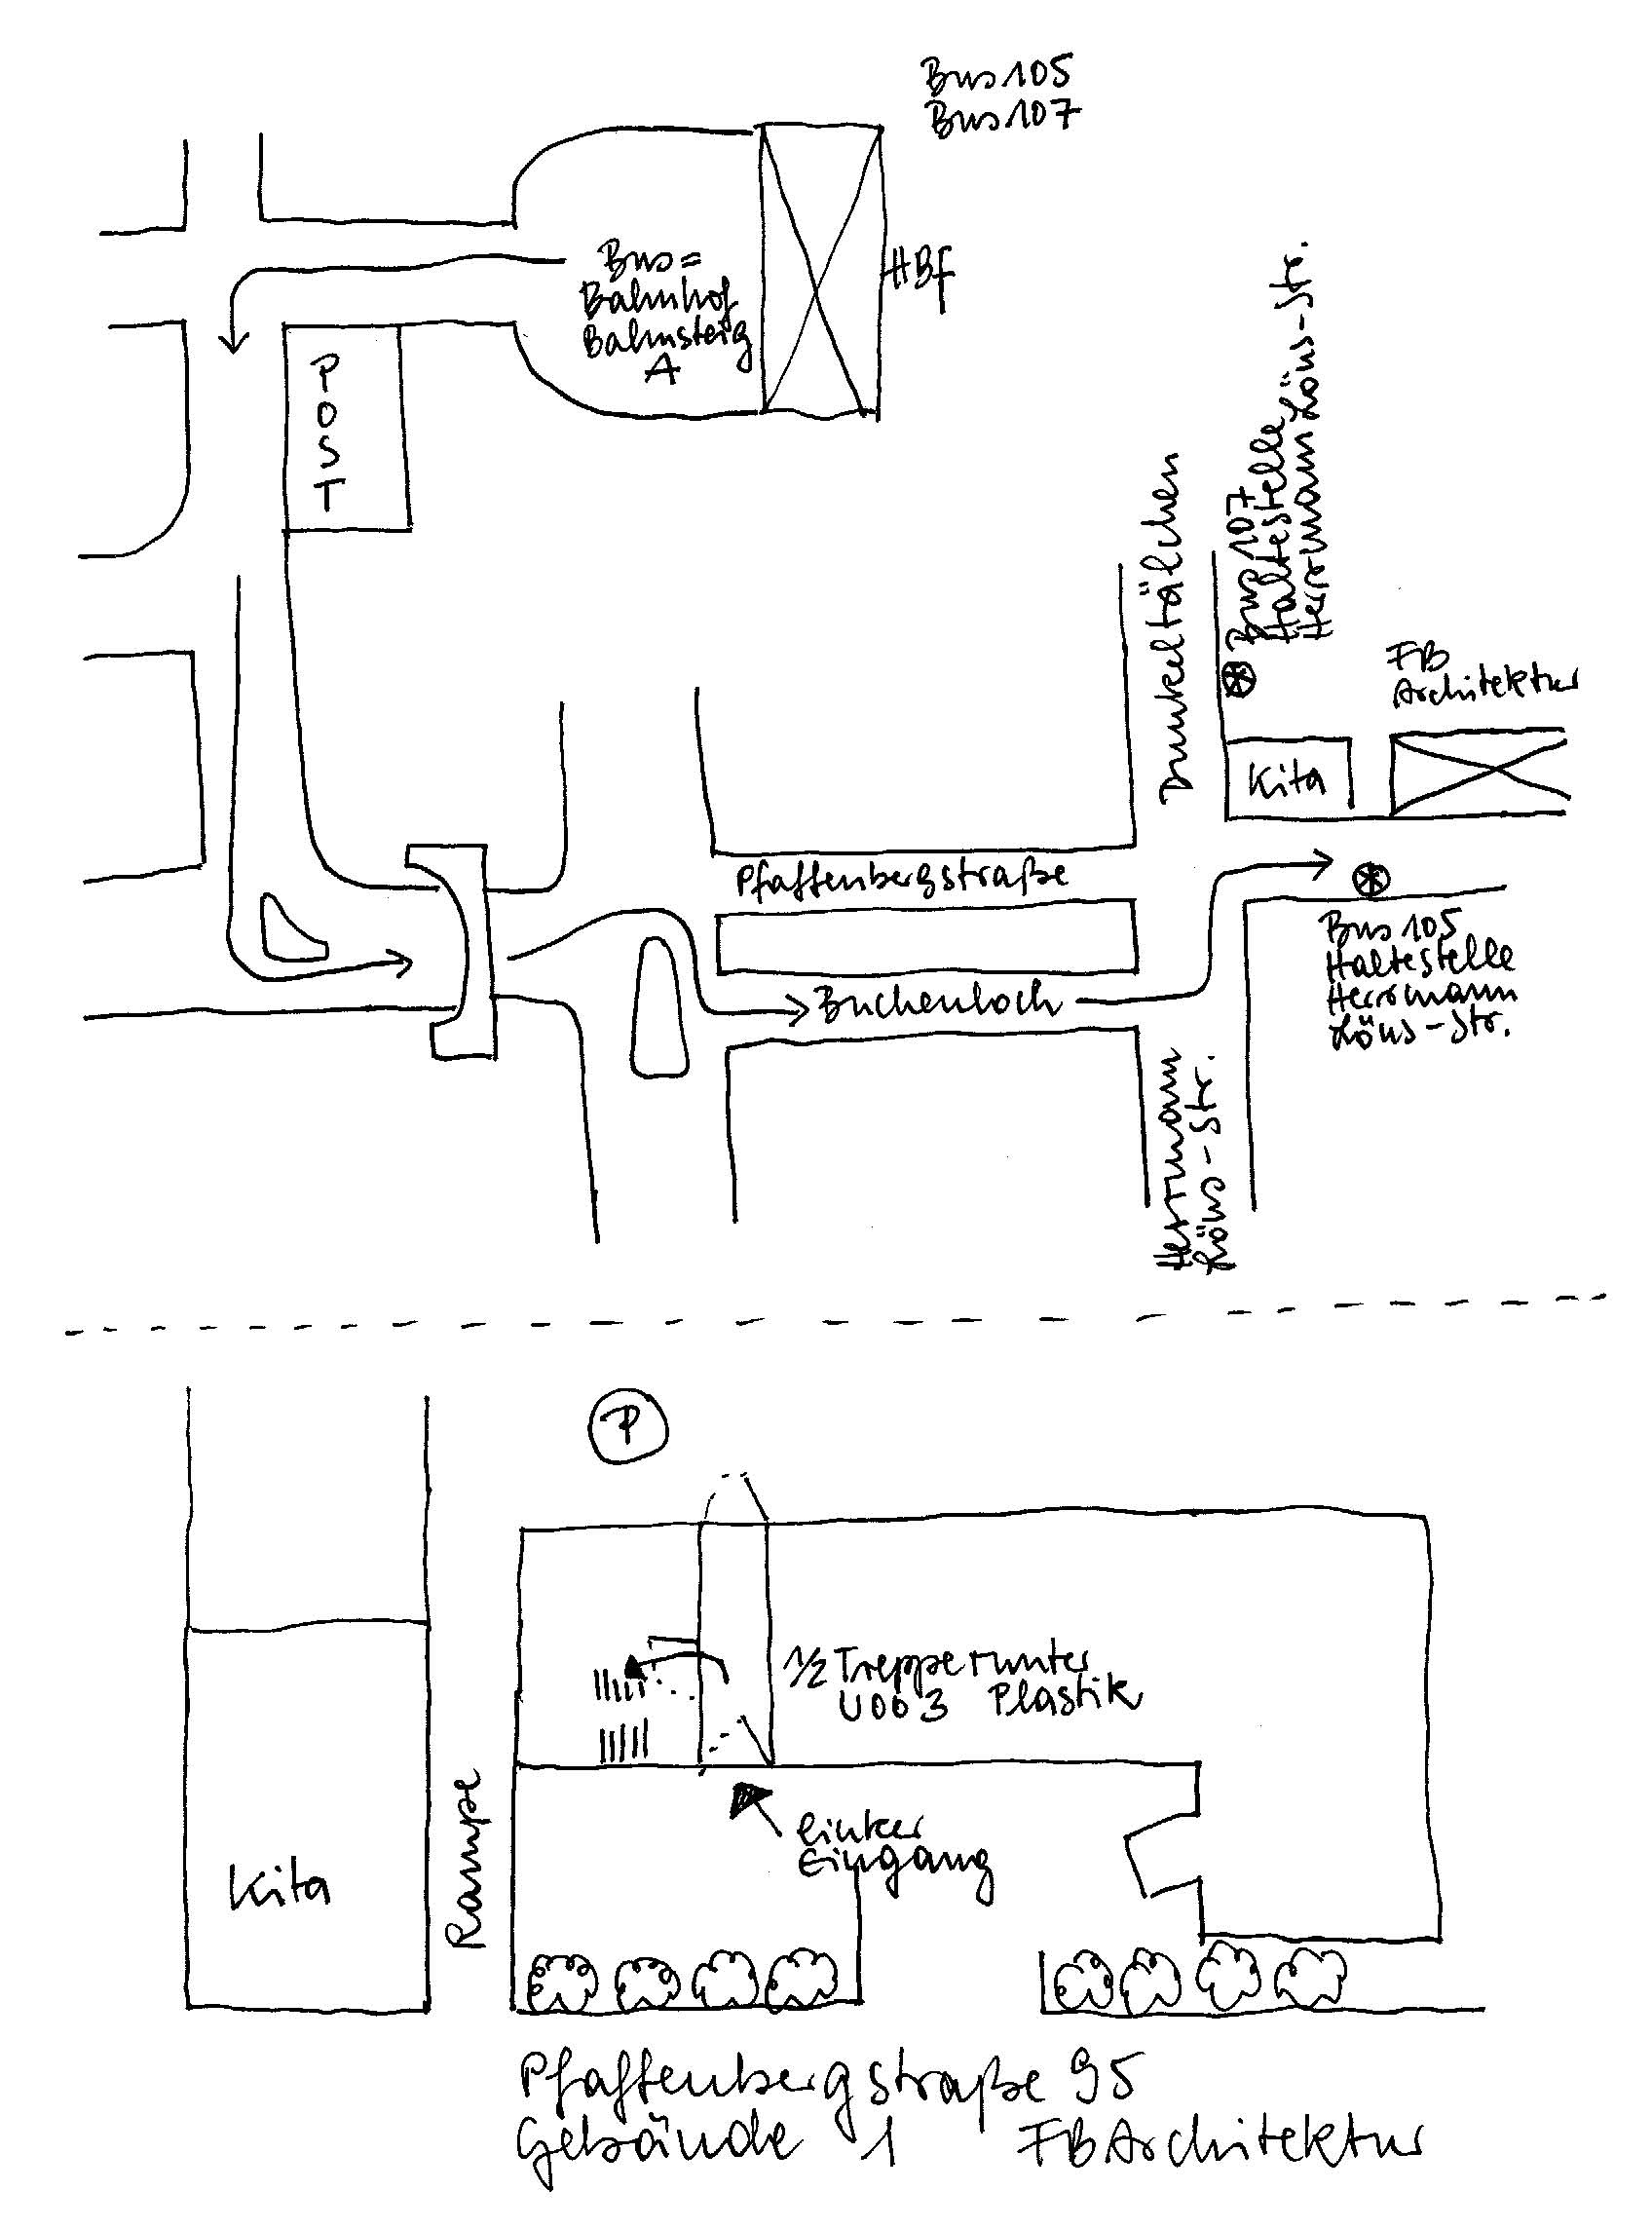 Bus 105
Bus 107
Bus=
Bahnhof
Bahnsteig
A
HBf
POST
Dunkeltälchen
Bus 107
Haltestelle
Herrmann Löns-Str.
FB
Architektur
Kita
Pfaffenbergstraße
Buchenloch
Bus 105
Haltestelle
Herrmann
Löns-Str.
Herrmann
Löns-Str.
P
1/2 Treppe runter
U003 Plastik
linker
Eingang
Rampe
Kita
Pfaffenbergstraße 95
Gebäude 1 FB Architektur